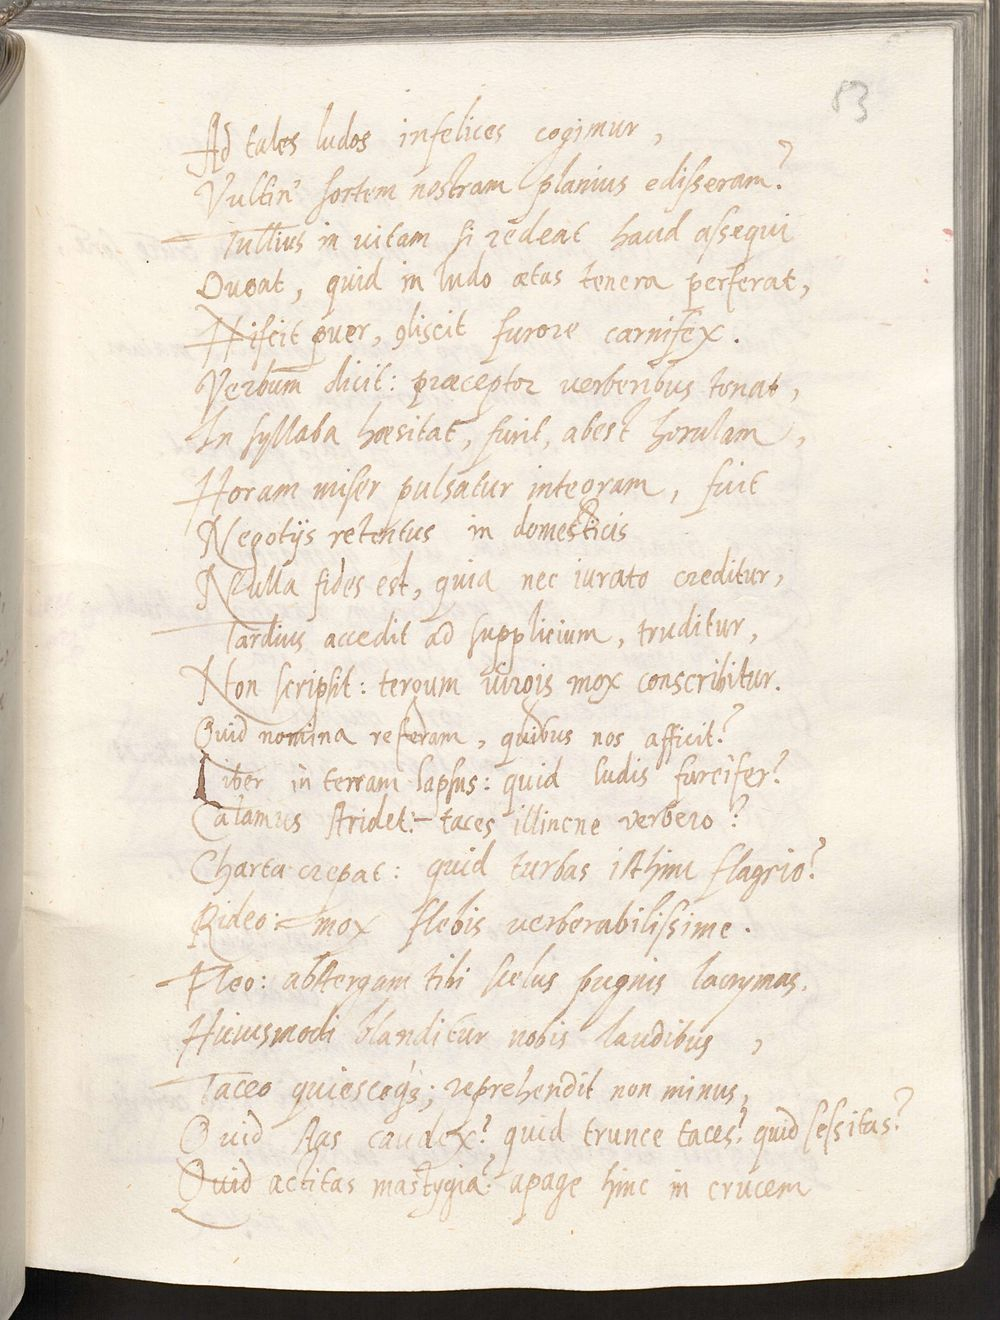 83
Ad tales ludos infelices cogimur,
Vultin' sortem nostram planius edisseram?
Tullius in vitam si redeat haud assequi
Queat, quid in ludo ætas tenera perferat,
Nescit puer, gliscit furore carnifex.
Verbum dicit: præceptor verberibus tonat,
In syllaba hæsitat, furit, abest horulam,
Horam miser pulsatur integram, fuit
Negotijs retentus in domesticis
Nulla fides est, quia nec iurato creditur,
Tardius accedit ad supplicium, truditur,
Non scripsit: tergum virgis mox conscribitur.
Quid nomina referam, quibus nos afficit?
Liber in terram lapsus: quid ludis furcifer?
Calamus stridet:- taces illincne verbero?
Charta crepat: quid turbas isthinc flagrio?
Rideo:- mox flebis verberabilissime.
Fleo: abstergam tibi scelus pugnis lacrymas.
Huiusmodi blanditur nobis laudibus,
Taceo quiescoq3; reprehendit non minus,
Quid stas caudex? quid trunce taces? quid sessitas?
Quid actitas mastygia? apage hinc in crucem